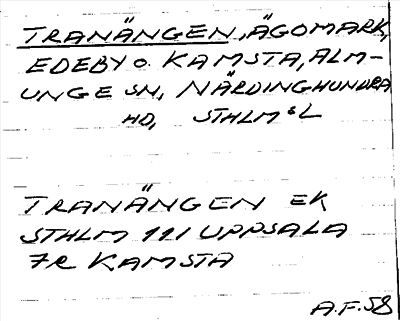 TRANÄNGEN, ÄGOMARK,
EDEBY O. KAMSTA, ALM-
UNGE SN, NÄRDINGHUNDRA
HD, STHLMS L
TRANÄNGEN EK
STHLM 111 UPPSALA
7e KAMSTA
A.F. 58